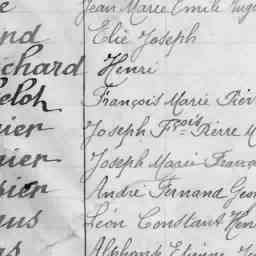 Jean Marie Emile
Elie Joseph
chard Henri
François Marie Pier
ier Joseph Fçois Pierre M
ier Joseph Marie Franç
ier André Fernand Geor
us Léon Constant Hen
Alphonse Etienne